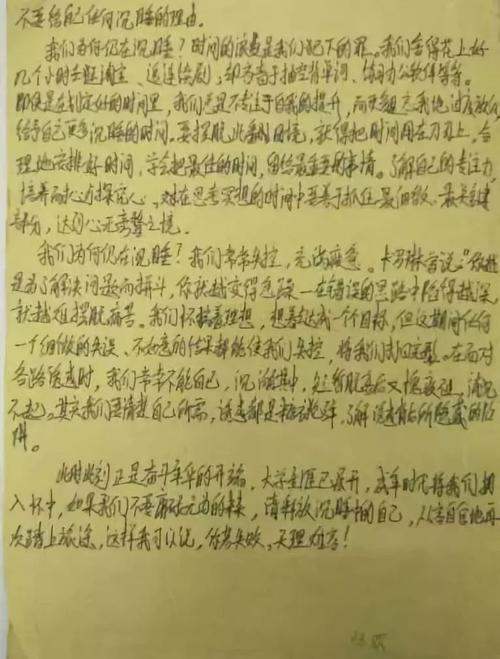 不要给自己任何沉睡的理由。
我们为何仍在沉睡？时间的浪费是我们犯下的罪。我们舍得花上好
几个小时去逛淘宝、追连续剧，却吝啬于抽空背单词、练习办公软件等等。
即使是在划定好的时间里，我们总是不专注于自我的提升，而更
给予自己更多沉睡的时间。要摆脱此番困境，就得把时间用在刀刃上，合
理地安排好时间，学会把最佳的时间，留给最重要的事情。了解自己的专注力，
培养耐心与探究心，在思考冥想的时间中要善于抓住最细微、最关键
部分，达到心无旁骛之境。
我们为何仍在沉睡？我们常常失控，充满疲惫。卡罗琳曾说："你越
是为了解决问题而拼斗，你就越变得急躁—在错误的思路中陷得越深，
就越难摆脱痛苦。我们怀揣着理想，想着达成一个个目标，但这期间任何
一个细微的失误、不如意的结果都能使我们失控，将我们打回原型。在面对
各路诱惑时，我们常常不能自已，沉溺其中，短暂脱离后又愧疚
不起。其实我们要清楚自己所需，诱惑都是，了解诱惑所隐藏的陷
阱。
此时此刻正是奋斗年华的开端，大学生涯已展开，成年时代将我们拥
入怀中，如果我们不要碌碌无为的未来，请释放沉睡中的自己，从容自信地再
次踏上旅途，这样我可以说，你若失败，天理难容！